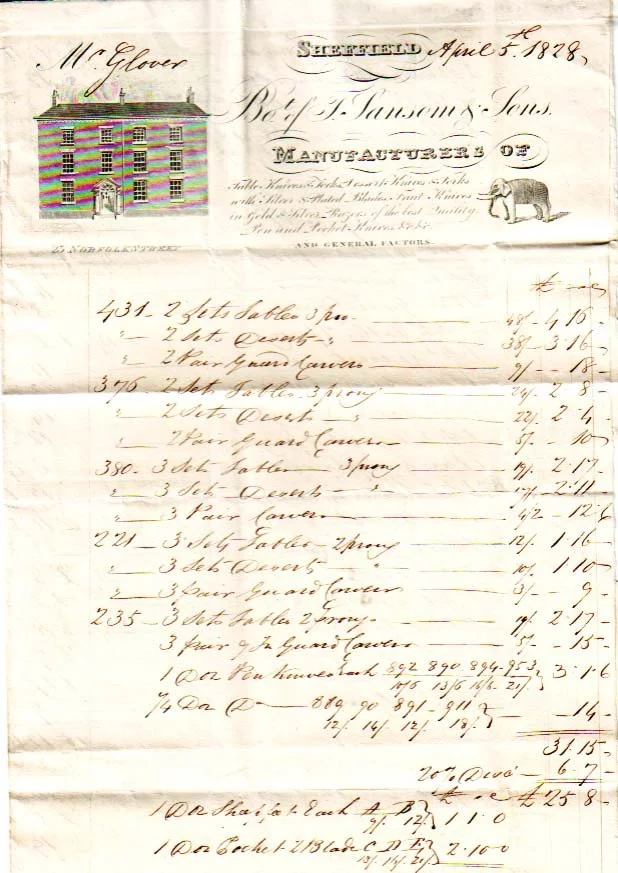 Mr Glover
SHEFFIELD April 5th 1828
Bot of T. Sansom & Sons.
MANUFACTURERS OF
Table Knives & Forks, Desert Knives & Forks
with Silver & Plated Blades, Fruit Knives
in Gold & Silver, Razors of the best Quality
Pen and Pocket Knives &c &c.
AND GENERAL FACTORS.
NORFOLK STREET
£
431 - 2 Sets Tables 3 pro 48/- 4 16 -
" - 2 Sets Deserts - " 38/- 3 16 -
" 2 Pair Guard Carvers 9/- - 18 -
376 - 2 Sets Tables 3 prong 24/. 2 8 -
" 2 Sets Deserts - " 22/. 2 4 -
" 2 Pair Guard Carvers 5/- - 10 -
380 - 3 Sets Tables 3 prong 19/. 2 17 -
" - 3 Sets Deserts - " 17/. 2 11 -
" 3 Pair Carvers 4/2 - 12 6
221 - 3 Sets Tables 2 prong 12/. 1 16 -
" - 3 Sets Deserts " 10/. 1 10 -
" - 3 pair Guard Carvers 3/- - 9 -
235 - 3 Sets Tables 2 prong 19/. 2 17 -
3 pair Guard Carvers 5/- - 15 -
1 Doz Pen Knives Each 892 890 894 953 3 1 6
10/6 13/6 16/6 21/.
Doz Do 889 90 891 911 - 14 -
12/. 14/. 12/. 18/.
31 15 -
20 Disct 6 7 -
£ £25 8 -
1 Doz Each A B 1 1 0
9/. 12/.
1 Doz Pocket 2 Blade C D E 2 10 0